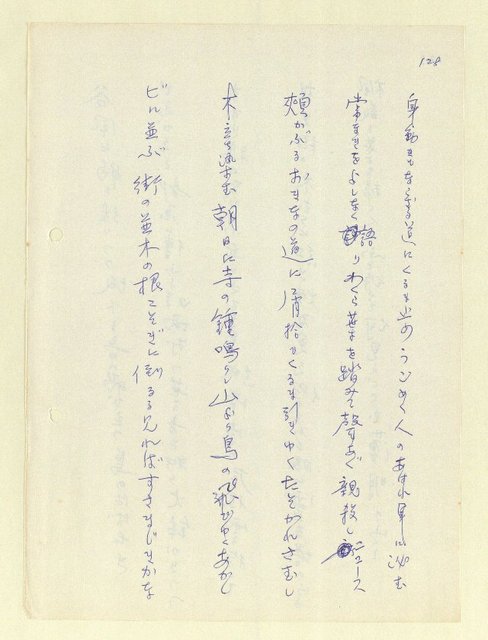 128
身動きもならぬ道にくるま止めうごめく人のあはれ身に泌む
常まきをよしなく語りわくら葉を踏みて聲あぐ親殺しニュース
頬かぶるおきなの道に屑拾ひくるま引きゆくたそがれさむし
木立流す 朝日に寺の鐘鳴りて山より鳥の飛びゆくあかし
ビル並ぶ街の並木の根こそぎに倒るる見ればすさまじきかな